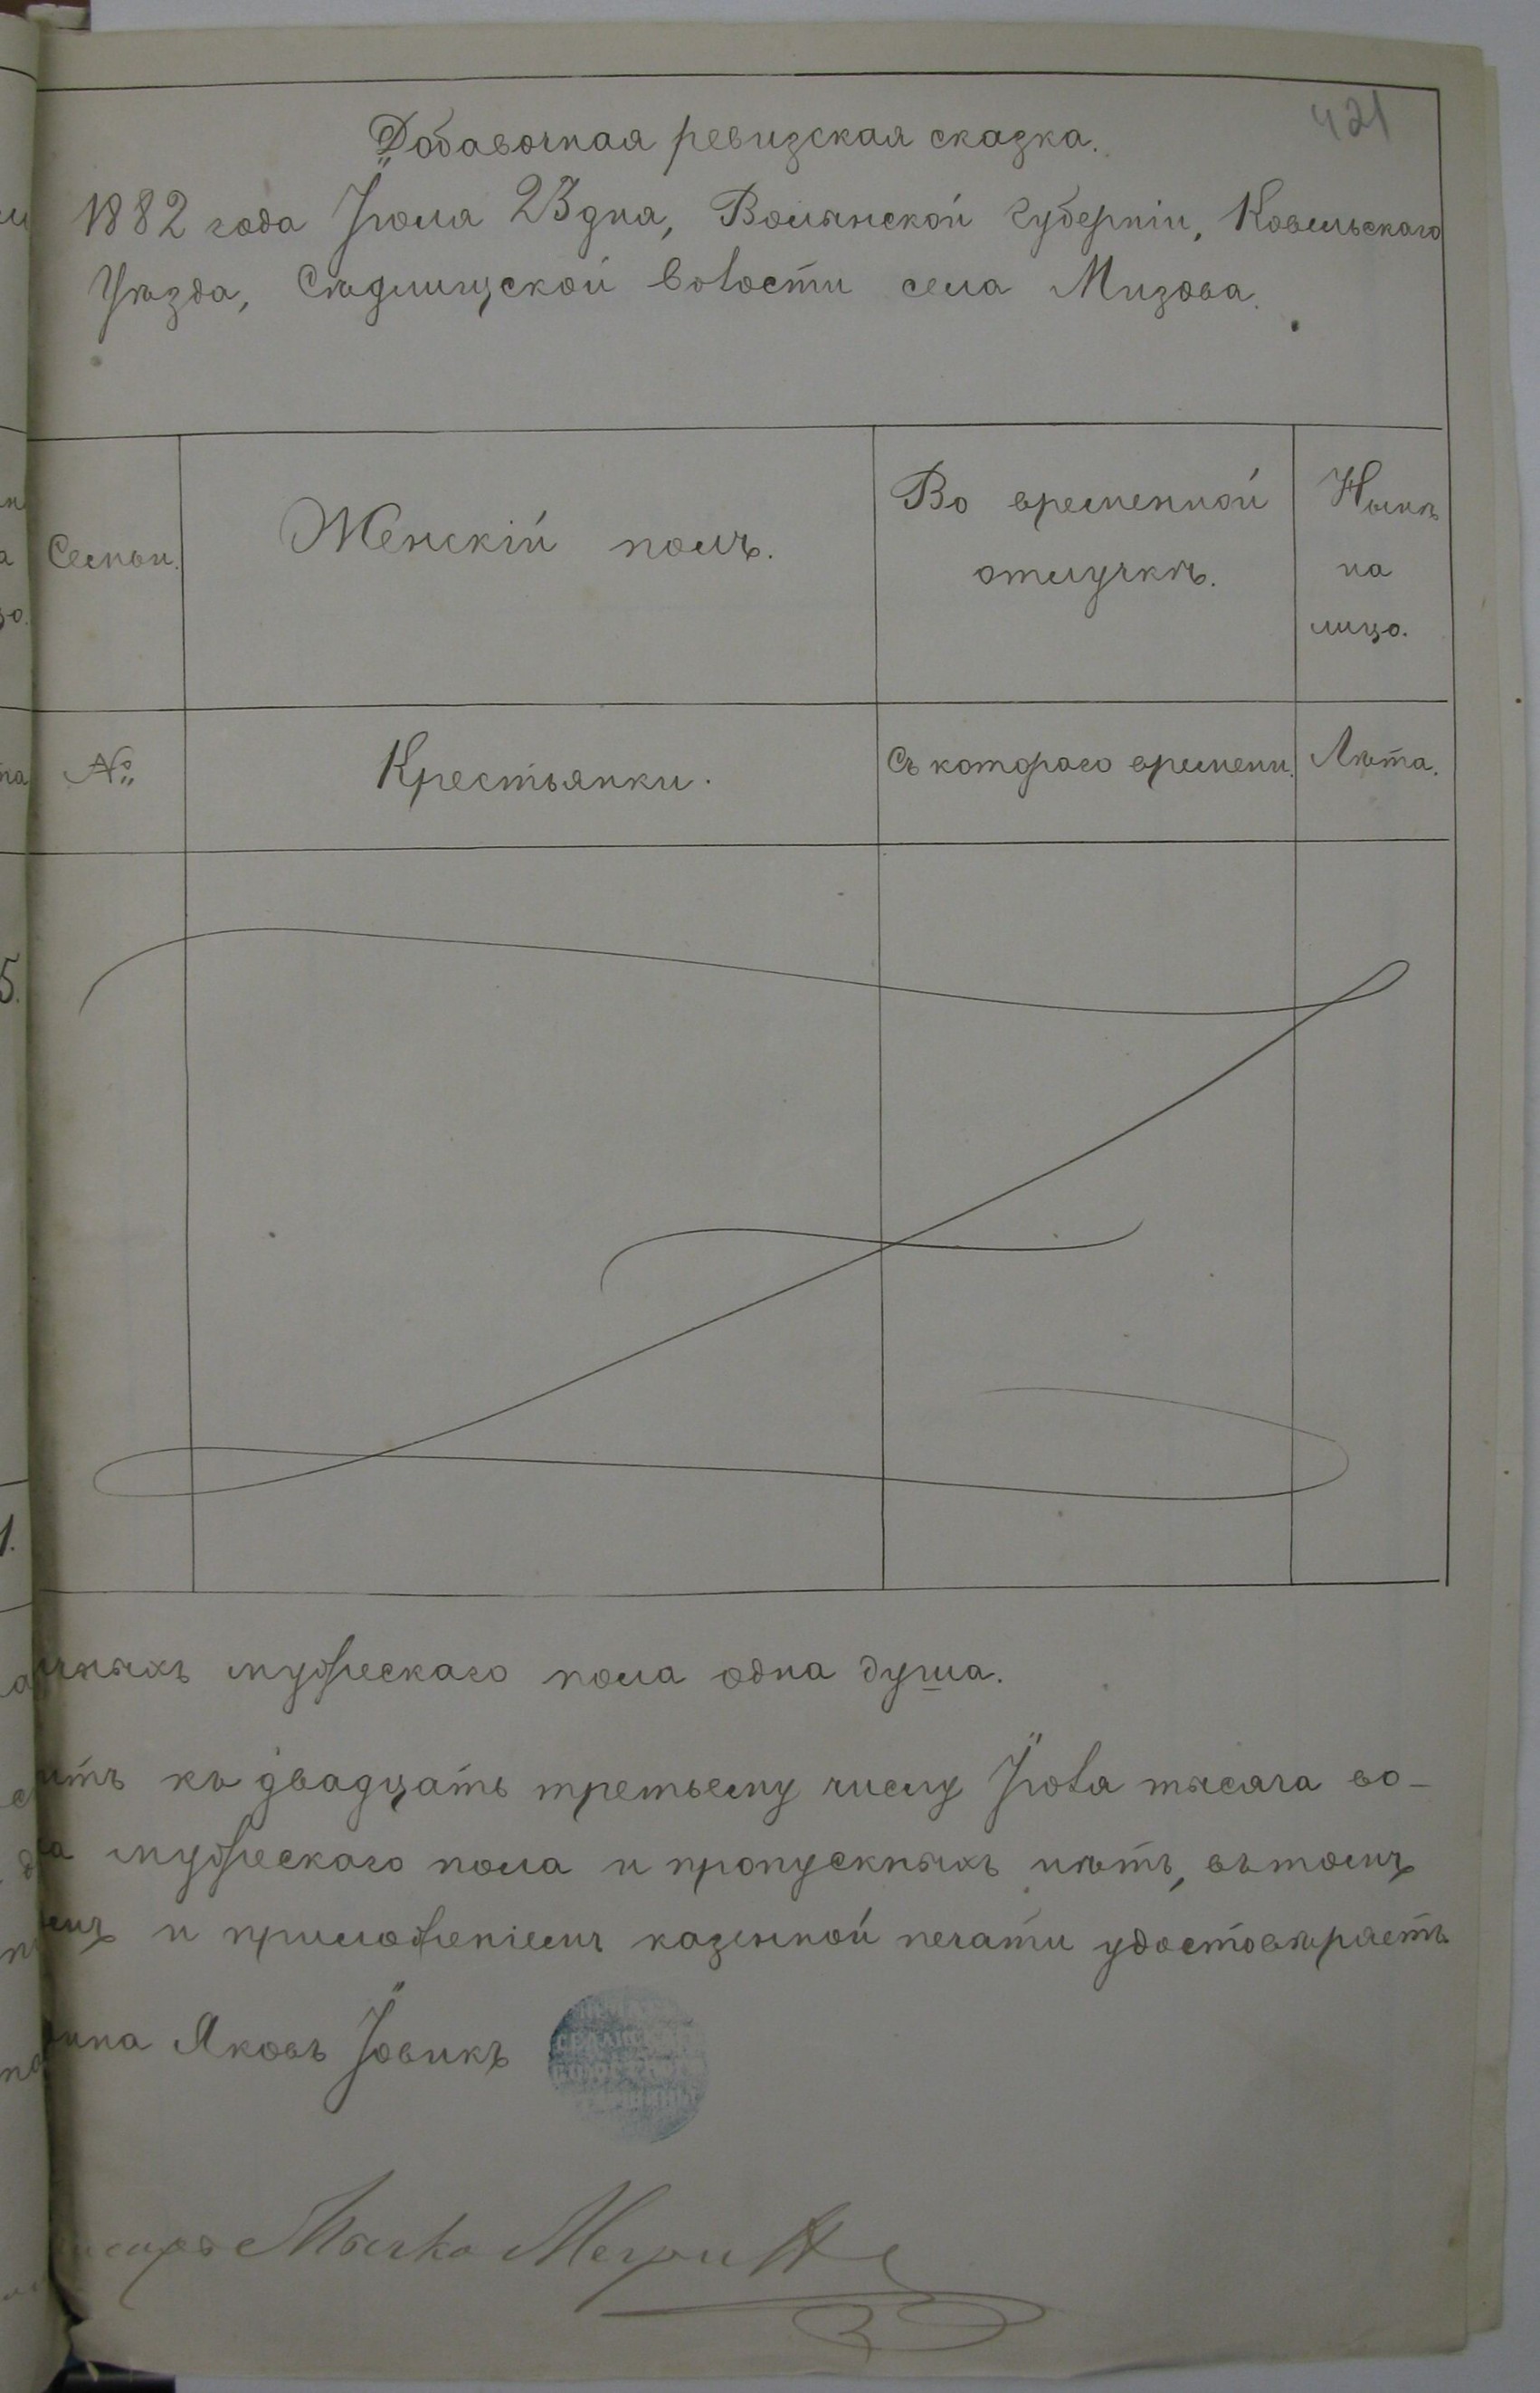 421
Добавочная ревизская сказка.
1882 года Iюля 23 дня, Волынской губернiи, Ковельскаго
Уѣзда, Сѣдлищской волости села Мизова.
Семьи.
Женскiй полъ.
Во временной
отлучкѣ.
Нынѣ
на
лицо.
№
Крестьянки.
Съ котораго времени.
Лѣта.
5.
1.
мужескаго пола одна душа.
къ двадцать третьему числу Iюля тысяча во-
мужескаго пола и пропускныхъ нѣтъ, въ томъ
и приложенiемъ казенной печати удостовѣряетъ
Яковъ Iовикъ